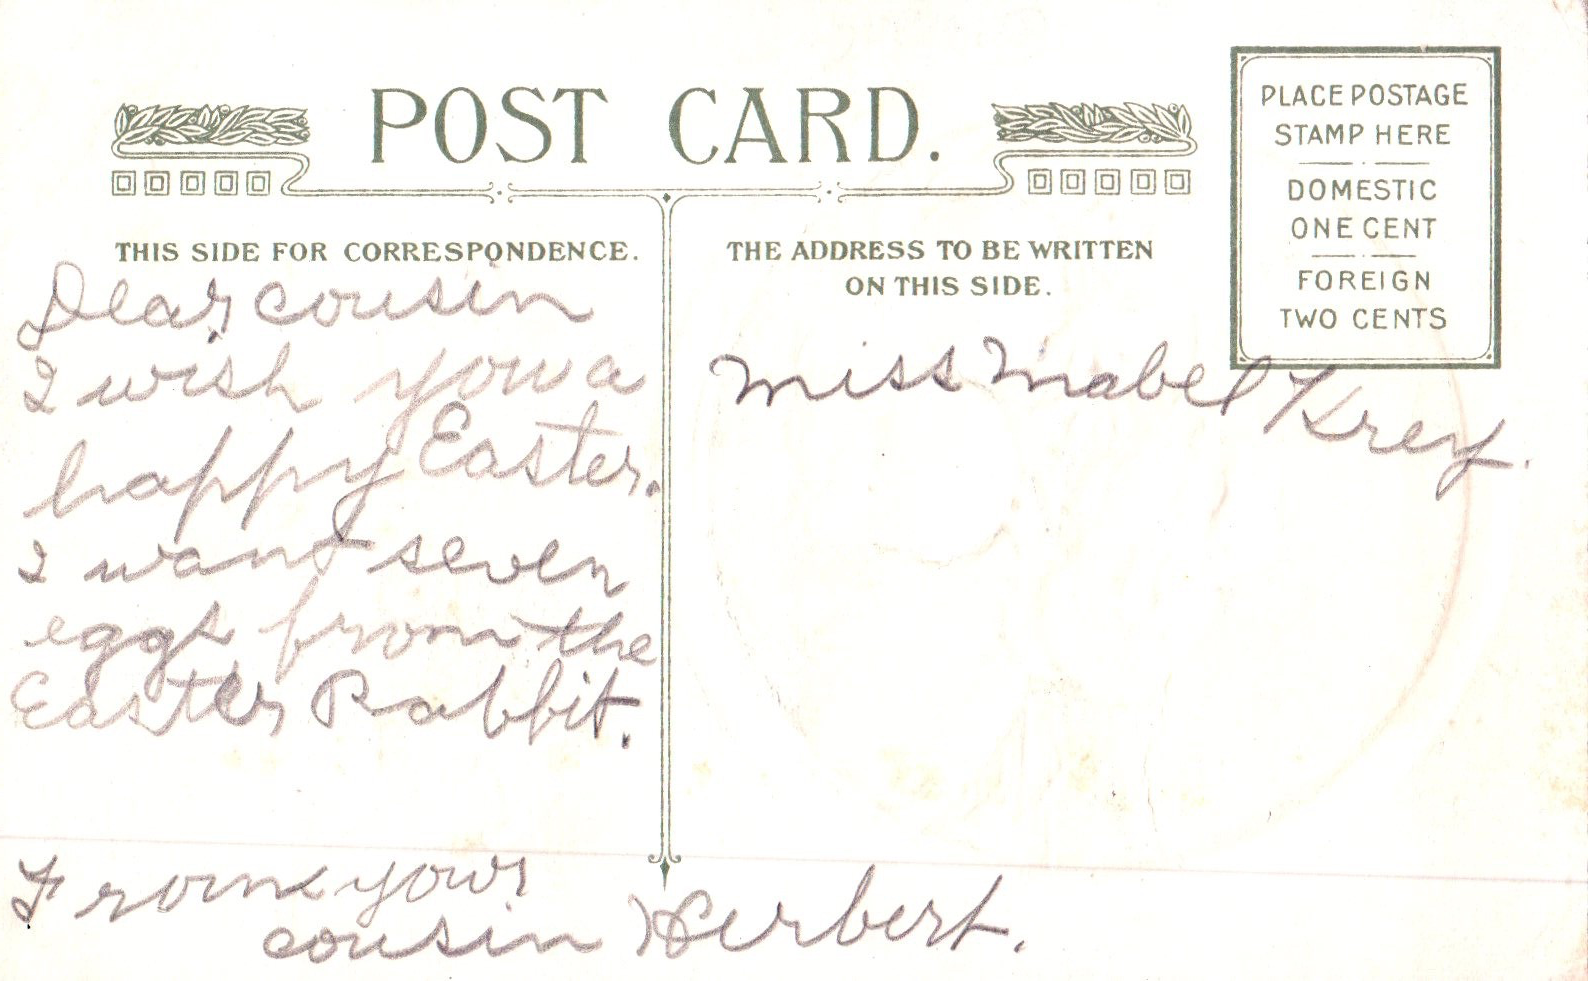 POST CARD.
PLACE POSTAGE
STAMP HERE
DOMESTIC
ONE CENT
FOREIGN
TWO CENTS
THIS SIDE FOR CORRESPONDENCE.
Dear cousin
I wish you a
happy Easter.
I want seven
eggs from the
Easter Rabbit.
From your
cousin Herbert.
THE ADDRESS TO BE WRITTEN
ON THIS SIDE.
Miss Mabel Krey.